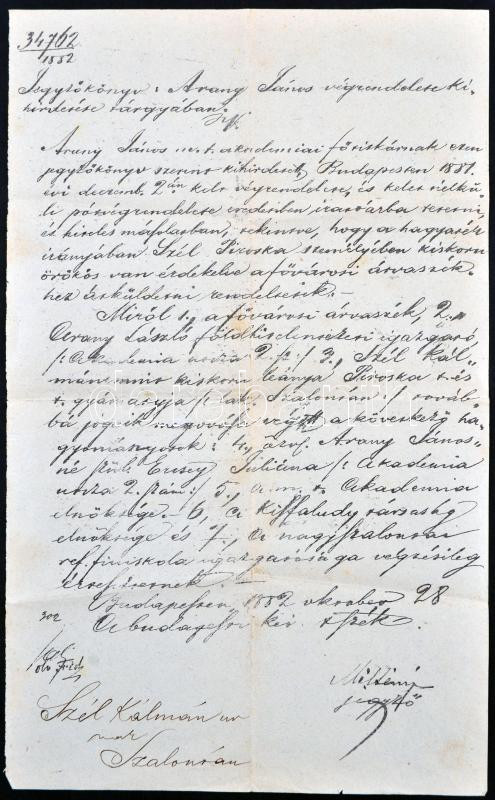 34762
1882
Jegyzőkönyv: Arany János végrendelete ki-
hirdetése tárgyában.
Arany János m. t. akademiai főtitkárnak ezen
jegyzőkönyv szerint kihirdetett, Budapesten 1881
évi decemb. 2án kelt végrendelete, és kelet nélkü-
li pótvégrendelete eredetiben irattárba tétetni,
és hiteles másolatban, tekintve, hogy a hagyaték
irányában Szél Piroska személyében kiskorú
örökös van érdekelve a fővárosi árvaszék-
hez átküldetni rendeltetik.-
Miről 1., a fővárosi árvaszék, 2.,
Arany László földhitelintézeti igazgató,
/: Akademia utcza 2. sz :/ 3., Szél Kál-
mán kiskorú leánya Piroska t. és
t. gyám atyja /: lak. Szalontán :/ továb-
bá jogaik megóvása végett a következő ha-
gyományosok: 4., özv. Arany János-
né szül. Ercsey Juliána /: Akademia
utcza 2. szám :/ 5., a m. t. Akademia
elnöksége. - 6., A Kisfaludy társaság
elnöksége és 7., A nagyszalontai
ref. finiskola igazgatósága végzésileg
értesittetnek. -
Budapesten, 1882 oktober 28
A budapesti kir. tszék.
302
jegyző
Szél Kálmán úr
nak
Szalontán
darabanth